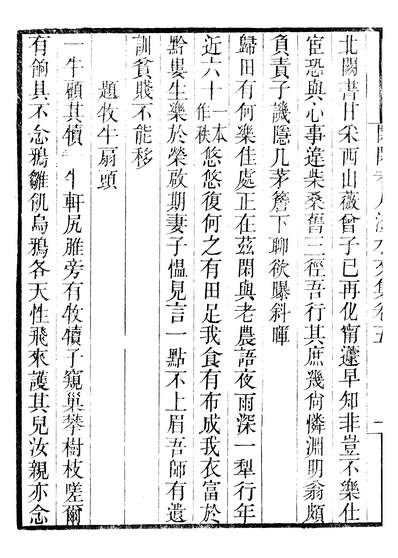 老人滏水文集卷五
北闕書甘采西山薇曾子已再化甯蘧早知非豈不樂仕
宦恐與心事違柴桑舊三徑吾行其庶幾尚憐淵明翁頗
負責子譏隱几茅簷下聊欲曝斜暉
歸田有何樂佳處正在茲閑與老農語夜雨深一犁行年
近六十一本作秩悠悠復何之有田足我食有布成我衣富於
黔婁生樂於榮啟期妻子慍見言一點不上眉吾師有遺
訓貧賤不能移
題牧牛扇頭
一牛顧其犢牛軒尻脽旁有牧犢子窺巢攀樹枝嗟爾
有餉具不念鴉雛飢烏鴉各天性飛來護其兒汝親亦念